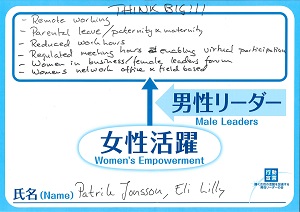 THINK BIG!!!
- Remote working
- Parental leave / paternity & maternity
- Reduced work hours
- Regulated meeting hours & enabling virtual participation
- Women in business/female leaders forum
- Women's network office & field based
男性リーダー
Male Leaders
女性活躍
Women's Empowerment
氏名(Name) Patrik Jonsson, Eli Lilly
行動宣言
輝く女性の活躍を加速する
男性リーダーの会